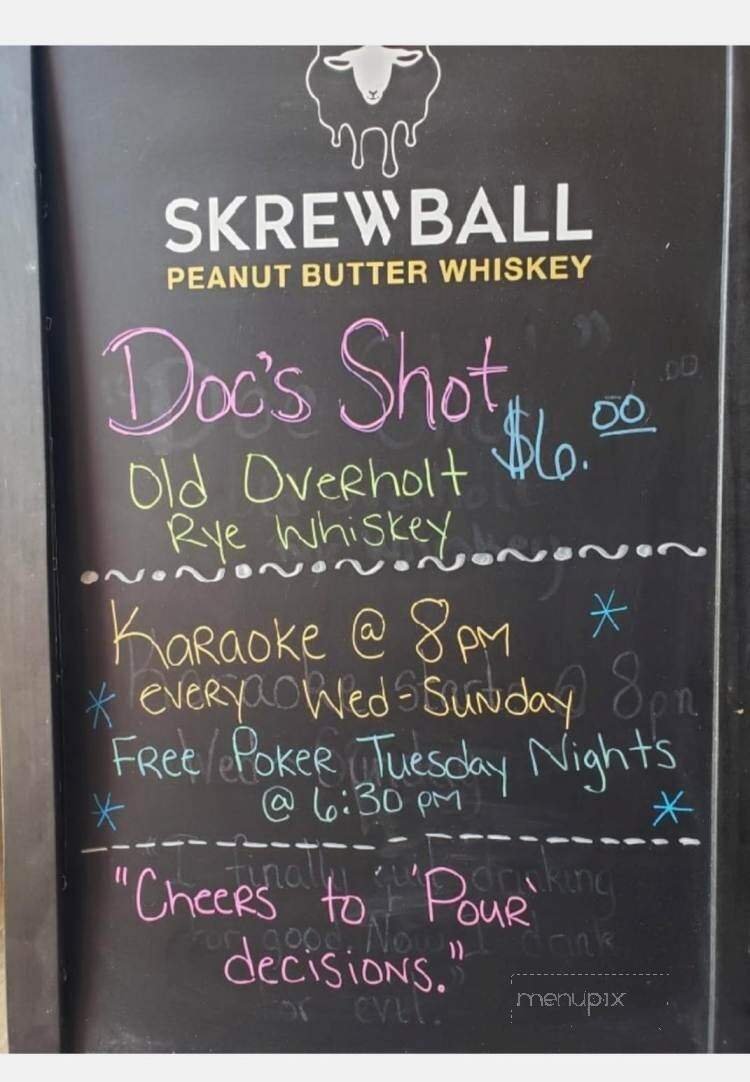 SKREWBALL
PEANUT BUTTER WHISKEY
Doc's Shot
$6.00
Old Overholt
Rye Whiskey
Karaoke @ 8pm
every Wed-Sunday
Free Poker Tuesday Nights
@ 6:30 pm
"Cheers to 'Pour'
decisions."
menupix